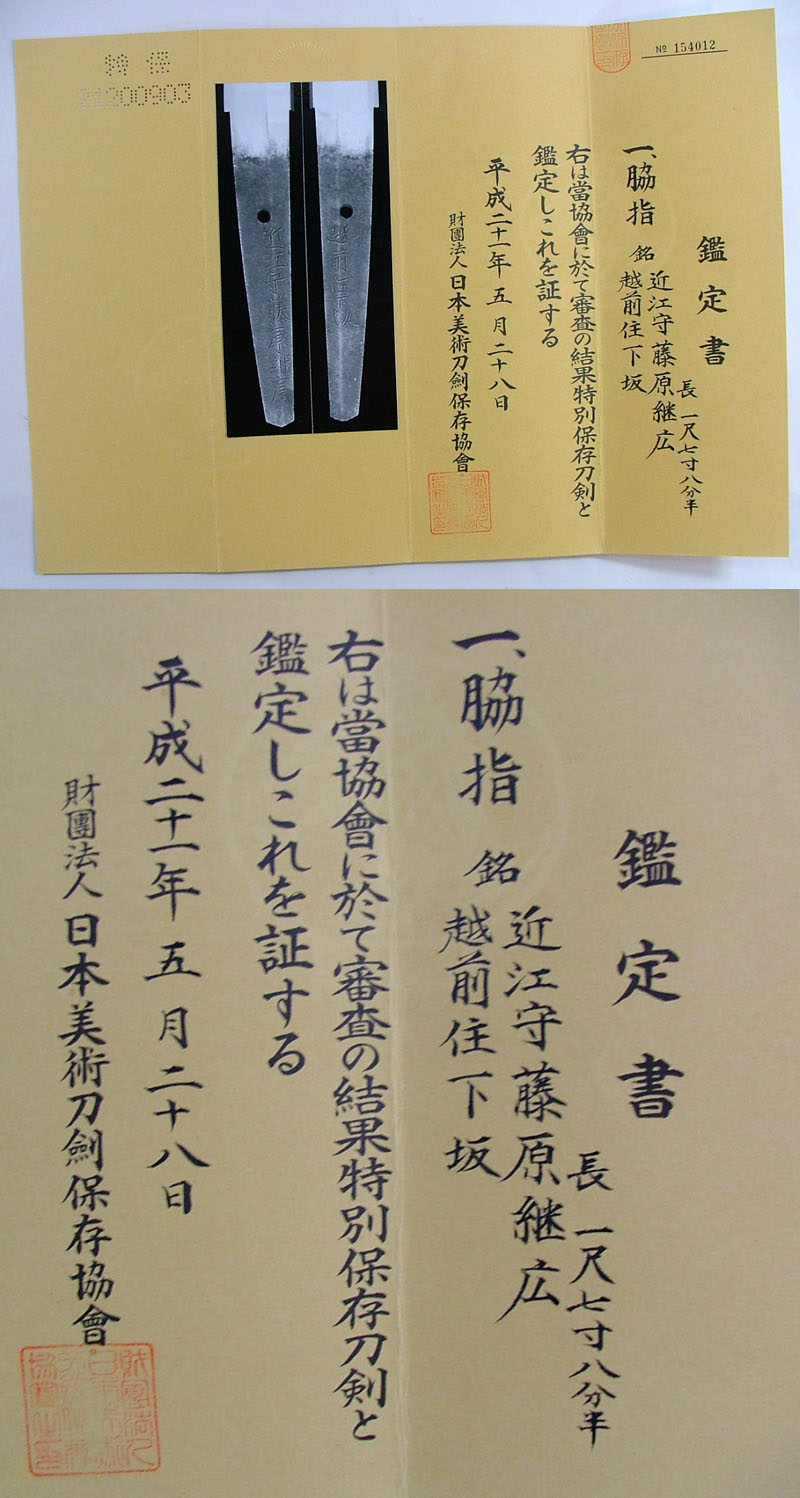 № 154012
鑑定書
一、脇指 銘 近江守藤原継広
越前住下坂
長 一尺七寸八分半
右は當協會に於て審査の結果特別保存刀剣と
鑑定しこれを証する
平成二十一年五月二十八日
財團法人 日本美術刀劍保存協會
特 保
21200903
近江守藤原継広
越前住下坂
鑑定書
長 一尺七寸八分半
一、脇指 銘 近江守藤原継広
越前住下坂
右は當協會に於て審査の結果特別保存刀剣と
鑑定しこれを証する
平成二十一年五月二十八日
財團法人 日本美術刀劍保存協會